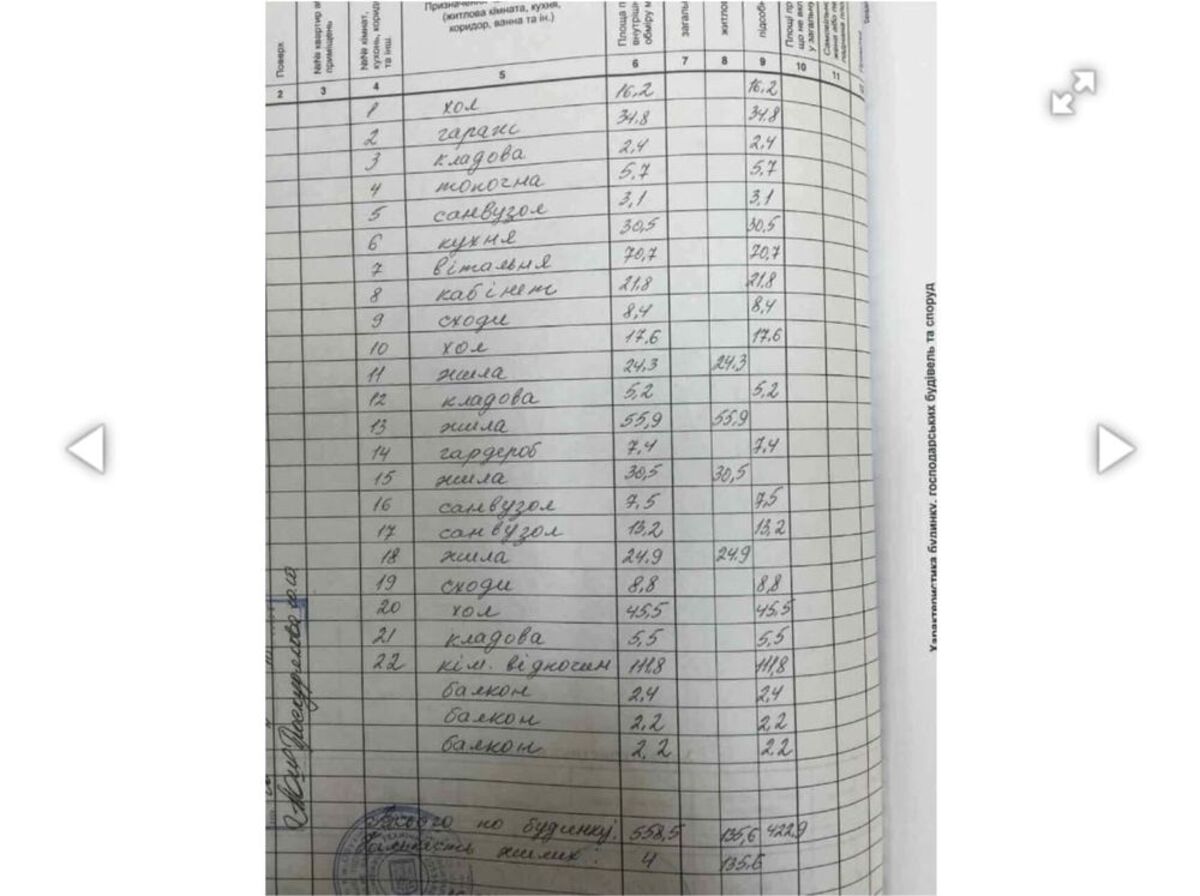 Поверх
№№ квартир
приміщень
№№ кімнат,
кухонь,
та інш.
Призначення
(житлова кімната, кухня,
коридор, ванна та ін.)
Площа
внутрішн
обміру
загаль
житлов
підсобн
Площі
що не вкл
у загальну
2 3 4 5 6 7 8 9 10 11
1 хол 16,2 16,2
2 гараж 34,8 34,8
3 кладова 2,4 2,4
4 топочна 5,7 5,7
5 санвузол 3,1 3,1
6 кухня 30,5 30,5
7 вітальня 70,7 70,7
8 кабінет 21,8 21,8
9 сходи 8,4 8,4
10 хол 17,6 17,6
11 жила 24,3 24,3
12 кладова 5,2 5,2
13 жила 55,9 55,9
14 гардероб 7,4 7,4
15 жила 30,5 30,5
16 санвузол 7,5 7,5
17 санвузол 13,2 13,2
18 жила 24,9 24,9
19 сходи 8,8 8,8
20 хол 45,5 45,5
21 кладова 5,5 5,5
22 кім. відпочин 111,8 111,8
балкон 2,4 2,4
балкон 2,2 2,2
балкон 2,2 2,2
Всього по будинку: 558,5 135,6 422,9
Кількість жилих: 4 135,6
Характеристика будинку, господарських будівель та споруд